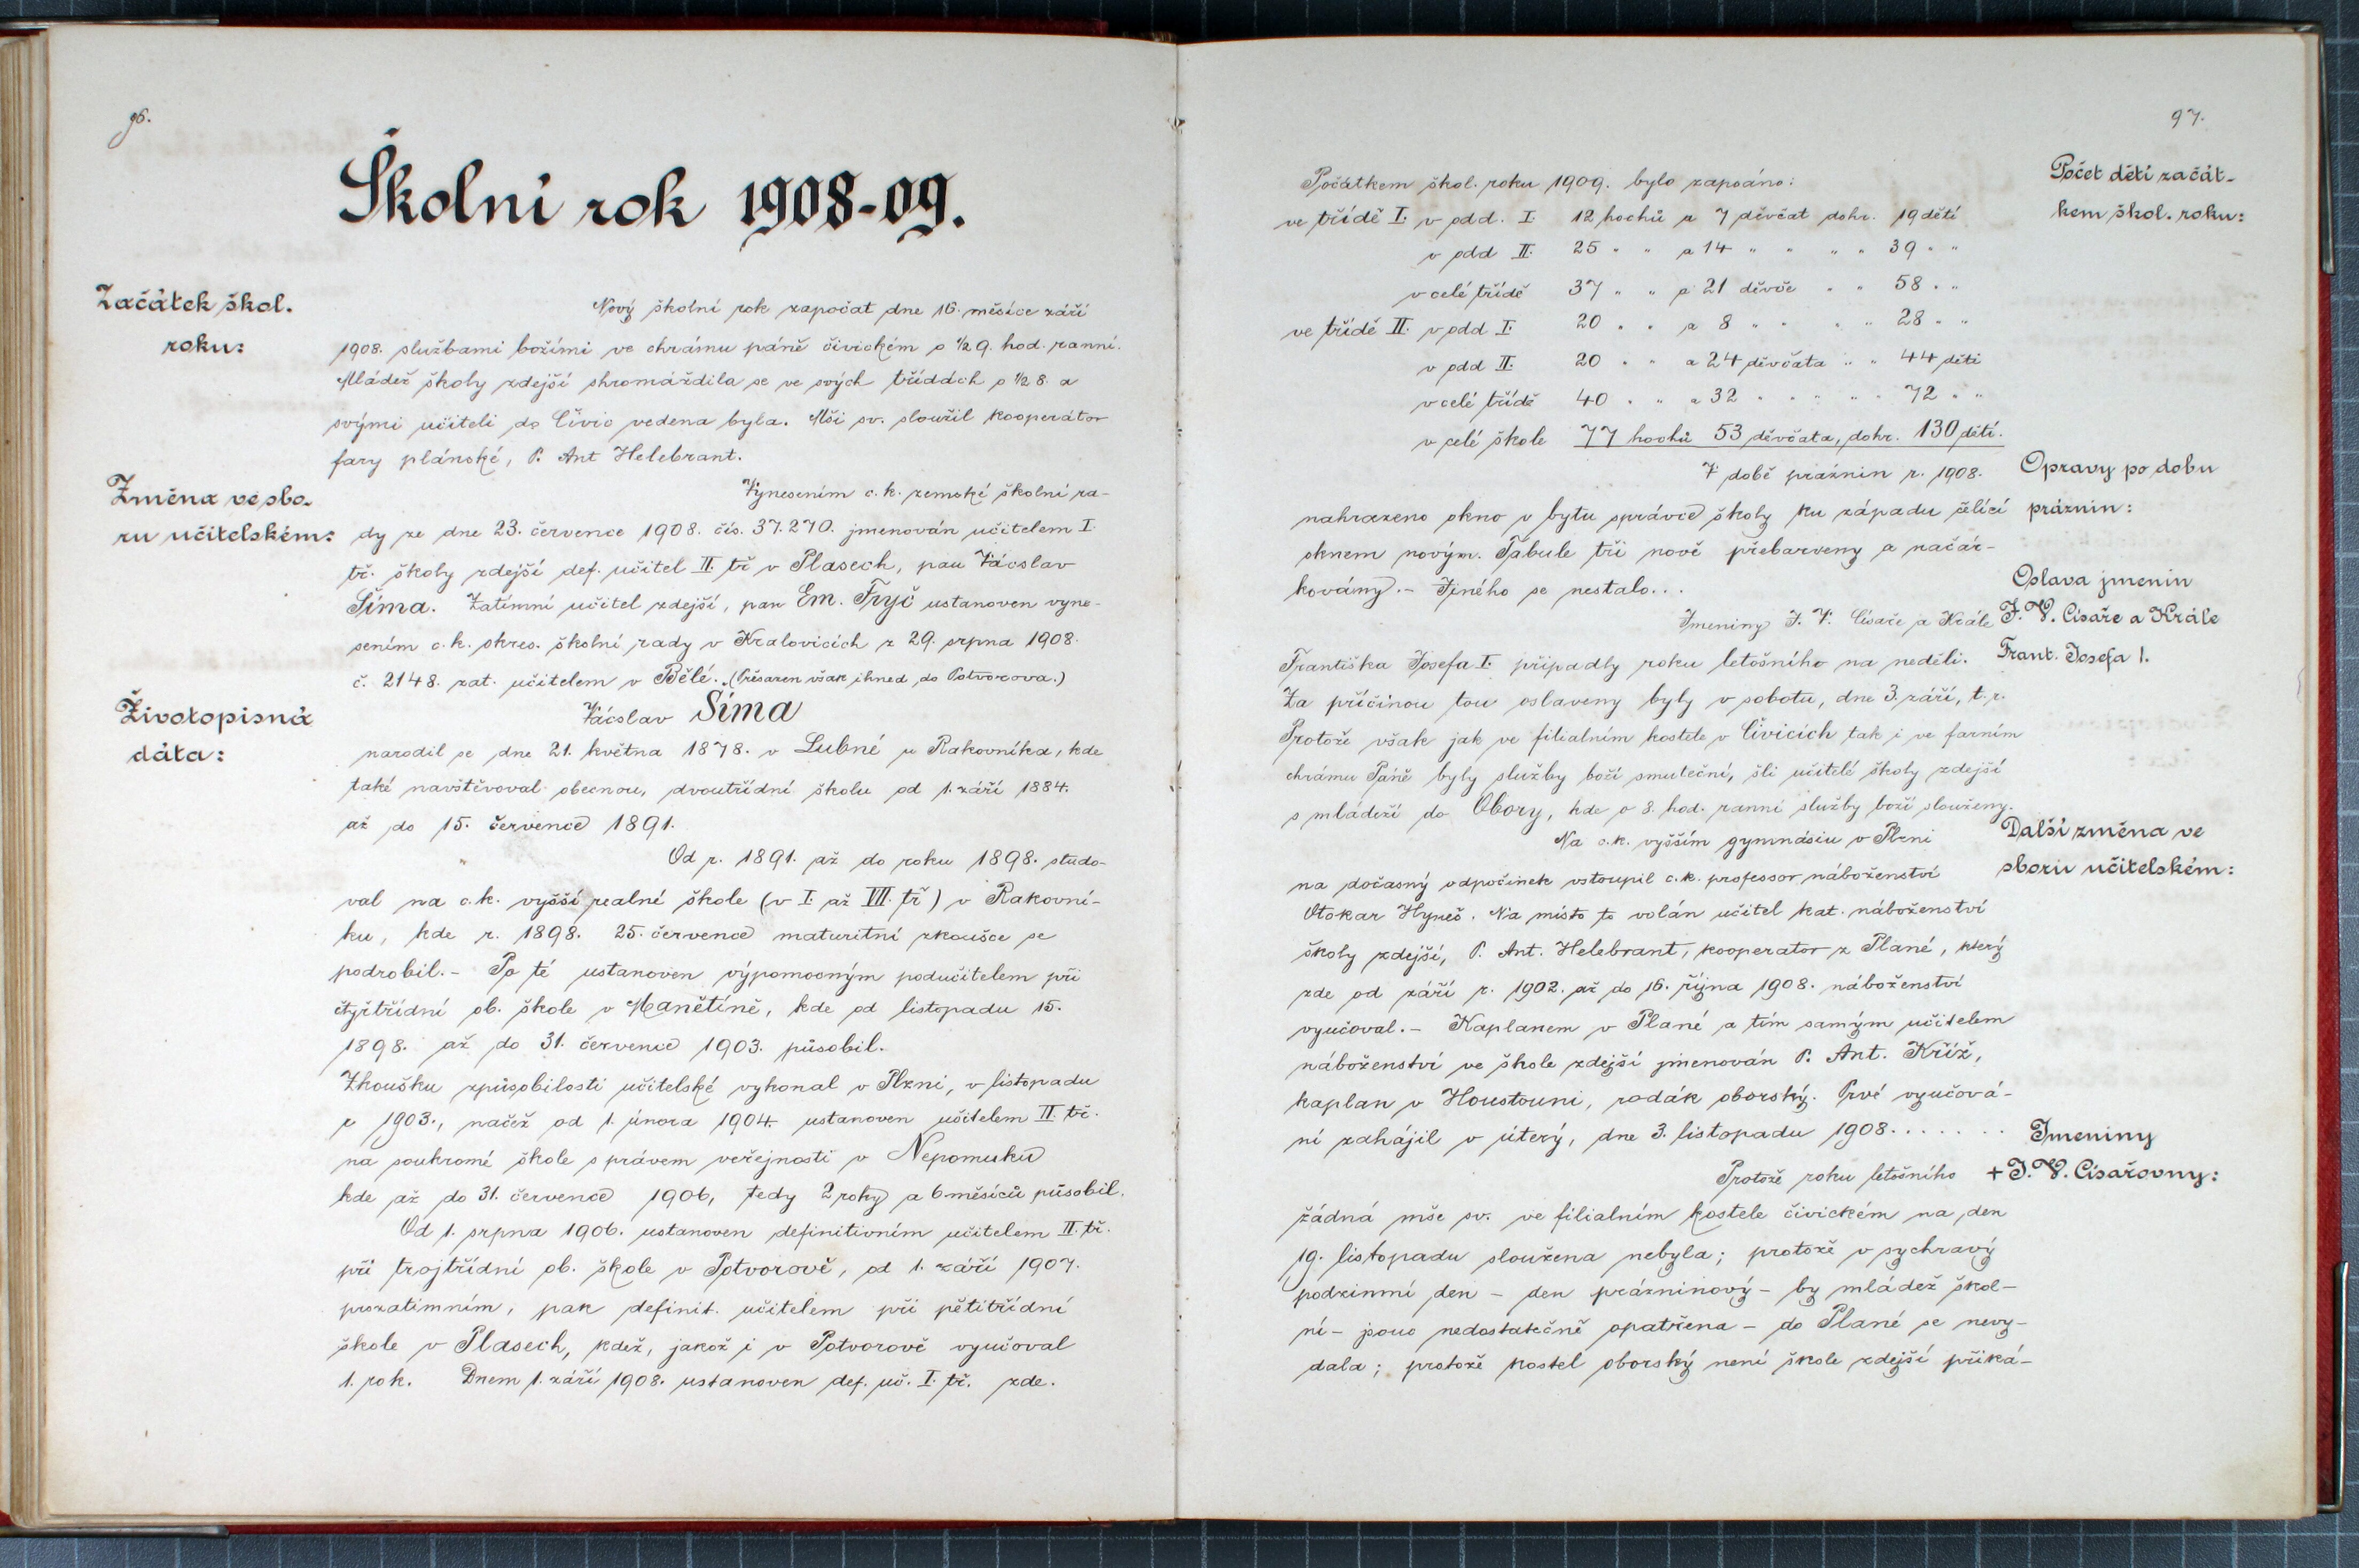 96.
Školní rok 1908-09.
Začátek škol.
roku:
Nový školní rok započat dne 16. měsíce září
1908. službami božími ve chrámu páně čivickém o ½ 9. hod. ranní.
Mládež školy zdejší shromáždila se ve svých třídách o ½ 8. a
svými učiteli do Čivic vedena byla. Mši sv. sloužil kooperátor
fary plánské, P. Ant Helebrant.
Změna ve sbo-
ru učitelském:
Vynesením c. k. zemské školní ra-
dy ze dne 23. července 1908. čís. 37.270. jmenován učitelem I.
tř. školy zdejší def. učitel II. tř v Plasech, pan Václav
Šíma. Zatímní učitel zdejší, pan Em. Fryč ustanoven vyne-
sením c. k. okres. školní rady v Kralovicích z 29. srpna 1908.
č. 2148. zat. učitelem v Bělé. (Přesazen však ihned do Potvorova.)
Životopisná
dáta:
Václav Šíma
narodil se dne 21. května 1878. v Lubné u Rakovníka, kde
také navštěvoval obecnou, dvoutřídní školu od 1. září 1884.
až do 15. července 1891.
Od r. 1891. až do roku 1898. studo-
val na c. k. vyšší realné škole (v I. až VII. tř) v Rakovní-
ku, kde r. 1898. 25. července maturitní zkoušce se
podrobil.- Po té ustanoven výpomocným podučitelem při
čtyřtřídní ob. škole v Manětíně, kde od listopadu 15.
1898. až do 31. července 1903. působil.
Zkoušku způsobilosti učitelské vykonal v Plzni, v listopadu
r 1903., načež od 1. února 1904. ustanoven učitelem II. tř.
na soukromé škole s právem veřejnosti v Nepomuku
kde až do 31. července 1906, tedy 2 roky a 6 měsíců působil.
Od 1. srpna 1906. ustanoven definitivním učitelem II. tř.
při trojtřídní ob. škole v Potvorově, od 1. září 1907.
prozatimním, pak definit. učitelem při pětitřídní
škole v Plasech, kdež, jakož i v Potvorově vyučoval
1. rok. Dnem 1. září 1908. ustanoven def. uč. I. tř. zde.
97.
Počet dětí začát-
kem škol. roku:
Počátkem škol. roku 1909. bylo zapsáno:
ve třídě I. v odd. I. 12 hochů a 7 děvčat dohr. 19 dětí
v odd II. 25 " " a 14 " " " " 39 " "
v celé třídě 37 " " a 21 děvče " " 58 " "
ve třídě II. v odd I. 20 " " a 8 " " " " 28 " "
v odd II. 20 " " a 24 děvčata " " 44 děti
v celé třídě 40 " " a 32 " " " " 72 " "
v celé škole 77 hochů 53 děvčata, dohr. 130 dětí.
Opravy po dobu
práznin:
V době práznin r. 1908.
nahrazeno okno v bytu správce školy ku západu čelící
oknem novým. Tabule tři nově přebarveny a načár-
kovány.- Jiného se nestalo...
Oslava jmenin
J. V. Císaře a Krále
Frant. Josefa I.
Jmeniny J. V. Císaře a Krále
Františka Josefa I. připadly roku letošního na neděli.
Za příčinou tou oslaveny byly v sobotu, dne 3. září, t. r.
Protože však jak ve filialním kostele v Čivicích tak i ve farním
chrámu Páně byly služby boží smuteční, šli učitelé školy zdejší
s mládeží do Obory, kde o 8. hod. ranní služby boží slouženy.
Další změna ve
sboru učitelském:
Na c. k. vyšším gymnásiu v Plzni
na dočasný odpočinek vstoupil c. k. professor náboženství
Otokar Hyneš. Na místo to volán učitel kat. náboženství
školy zdejší, P. Ant. Helebrant, kooperator z Plané, který
zde od září r. 1902. až do 16. října 1908. náboženství
vyučoval.- Kaplanem v Plané a tím samým učitelem
náboženství ve škole zdejší jmenován P. Ant. Kříž,
kaplan v Houstouni, rodák oborský. Prvé vyučová-
ní zahájil v úterý, dne 3. listopadu 1908.......
Jmeniny
+ J. V. Císařovny:
Protože roku letošního
žádná mše sv. ve filialním kostele čivickém na den
19. listopadu sloužena nebyla; protože v sychravý
podzimní den - den prázninový - by mládež škol-
ní - jsouc nedostatečně opatřena - do Plané se nevy-
dala; protože kostel oborský není škole zdejší přiká-